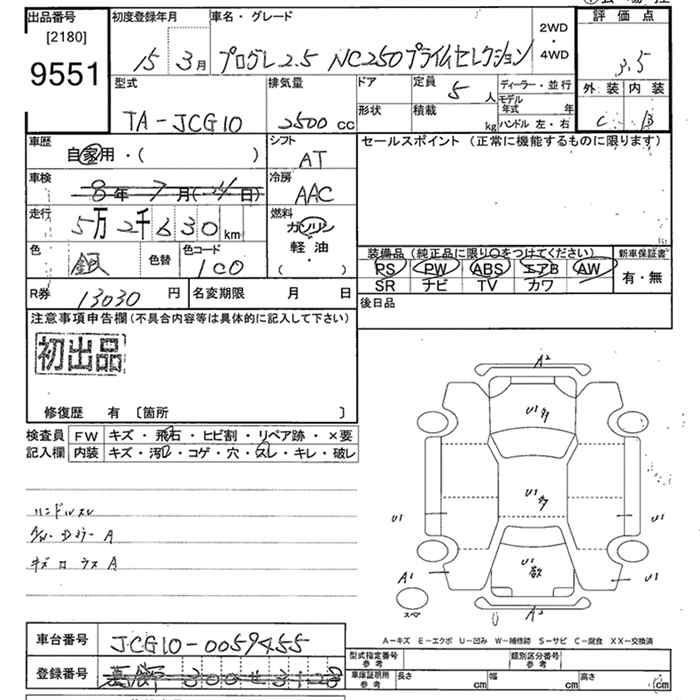 出品番号
[2180]
9551
初度登録年月
15年3月
車名・グレード
プログレ2.5 NC250プライムセレクション
2WD
・
4WD
評価点
3.5
外装 内装
C B
型式
TA-JCG10
排気量
2500cc
ドア
定員
5人
形状
積載
kg
ディーラー・並行
モデル年式 年
ハンドル 左・右
車歴
自家用・( )
シフト
AT
セールスポイント (正常に機能するものに限ります)
車検
8年7月(4日)
冷房
AAC
走行
5万2千630km
燃料
ガソリン
軽・油
( )
色
銀
色替
色コード
1C0
装備品(純正品に限り○をつけてください)
PS PW ABS エアB AW
SR ナビ TV カワ
新車保証書
有・無
R券
13030円
名変期限 月 日
後日品
注意事項申告欄(不具合内容等は具体的に記入して下さい)
初出品
修復歴 有 〔箇所 〕
検査員
記入欄
FW キズ・飛石・ヒビ割・リペア跡・×要
内装 キズ・汚レ・コゲ・穴・スレ・キレ・破レ
ハンドルスレ
A2
U1
U1
U1
U1
U1
U1
A1
スペア
A2
A-キズ E-エクボ U-凹み W-補修跡 S-サビ C-腐食 XX-交換済
車台番号
JCG10-0059455
登録番号
300 せ 3128
型式指定番号
参考
類別区分番号
参考
車庫証明用
参考
長さ cm 幅 cm 高さ cm